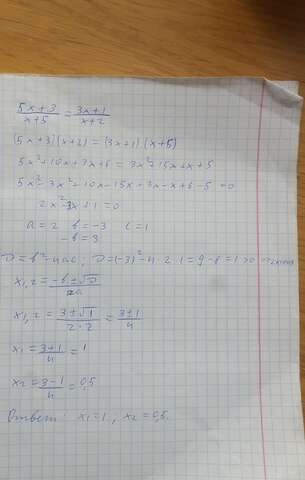 (5x+3)/(x+5) = (3x+1)/(x+2)
(5x+3)(x+2) = (3x+1)(x+5)
5x²+10x+3x+6 = 3x²+15x+x+5
5x²-3x²+10x-15x+3x-x+6-5=0
2x²-3x+1=0
a=2 b=-3 c=1
-b=3
D=b²-4ac, D=(-3)²-4·2·1=9-8=1>0
x₁,₂=(-b±√D)/2a
x₁,₂=(3±√1)/(2·2)=(3±1)/4
x₁=(3+1)/4=1
x₂=(3-1)/4=0,5
Ответ: x₁=1, x₂=0,5.